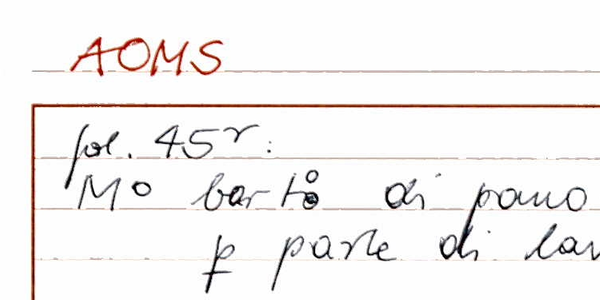 AOMS
fol. 45r:
Mo barto di pano
p parte di lav